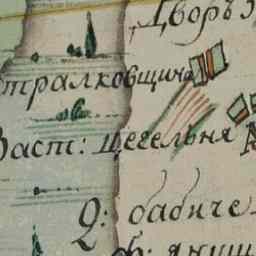 Дворъ
тралковщина
Заст: цегельня
Q: бабиче
Ф: янищ